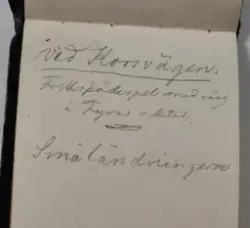 Vid Korsvägen.
Folkskådespel med sång
i Fyra akter.
Småländningarne